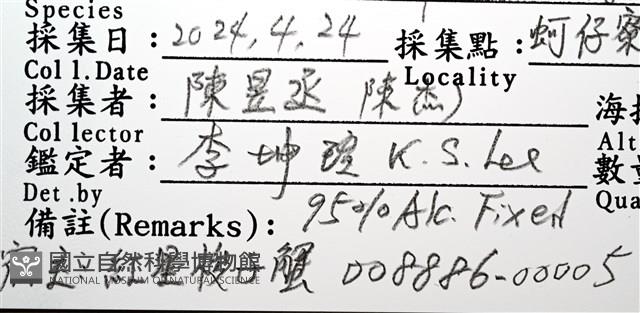 Species
採集日：2024, 4, 24 採集點：蚵仔寮
Coll.Date Locality
採集者：陳昱丞 陳杰 海拔
Collector Alt
鑑定者：李坤瑄 K. S. Lee 數量
Det.by Qua
備註(Remarks)： 95% Alc. Fixed
紅星梭子蟹 008886-00005
國立自然科學博物館
NATIONAL MUSEUM OF NATURAL SCIENCE